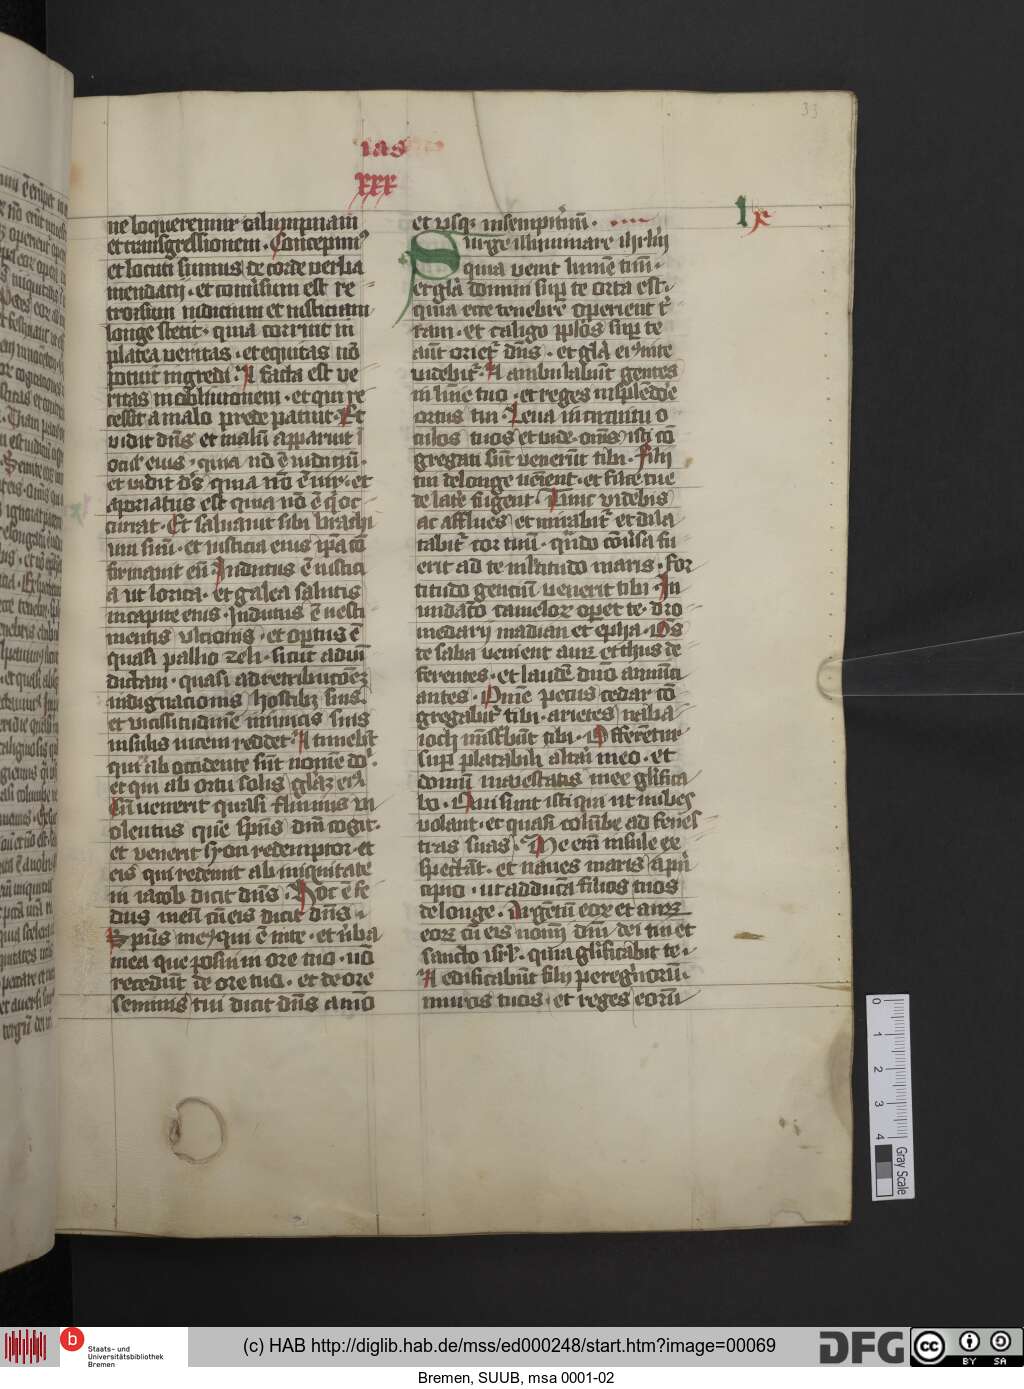 33
ias
xxx
lx
ne loqueremur calumpniam
et transgressionem · Concepimꝰ
et locuti sumus de corde verba
mendacij · et conuersum est re
trorsum iudicium et iusticiam
longe stetit · quia corruit in
platea veritas · et equitas nō
potuit ingredi · A facta est ve
ritas in obliuionem · et qui re
cessit a malo prede patuit · Et
vidit dn̄s et malū apparuit ī
oculꝭ eius · quia nō ē iudiciū ·
et vidit ds̄ quia nō ē vir · et
aporiatus est quia nō ē q̇ oc
currat · Et saluauit sibi brachi
um suū · et iusticia eius ip̄a cō
firmauit eū · Indutus ē iustici
a ut lorica · et galea salutis
in capite eius · Indutus ē vesti
mentis vlcionis · et optus ē
quasi pallio zeli · sicut ad vin̄
dictam · quasi ad retributōeꝫ
indignacionis hostibꝫ suis
et vicissitudinē inimicis suis
insulis vicem reddet · A timebūt
qui ab occidente sūt nomē do ·
et qui ab ortu solis gl̄aꝫ eiꝰ
cū venerit quasi fluuius vi
olentus quē sp̄us dn̄i cogit ·
et venerit syon redemptor · et
eis qui redeunt ab iniquitate
in iacob dicit dn̄s · Hoc ē fe
dus meū cū eis dicit dn̄s ·
Sp̄us meꝰ qui ē in te · et v̄ba
mea que posui in ore tuo · nō
recedūt de ore tuo · et de ore
seminis tui dicit dn̄s amō
et vsqꝫ in sempit̄nū ·
Surge illuminare ihrl̄m
quia venit lumē tuū ·
et gl̄a domini sup̄ te orta est ·
quia ecce tenebre operient t̄
ram · et caligo pp̄los sup̄ te
aūt oriet̄ dn̄s · et gl̄a eiꝰ in te
videbit̄ · A ambulabūt gentes
in lūine tuo · et reges in splēdoꝛe
ortus tui · Leua in circuitu o
culos tuos et vide · om̄s isti cō
gregati sūt venerūt tibi · Filij
tui de longe veniēt · et filie tue
de late͛ surgent · Tunc videbis
ac afflues et mirabit̄ et dila
tabit̄ cor tuū · qn̄do cōuersa fu
erit ad te multitudo maris · For
titudo genciū venerit tibi · In
undacō cameloꝝ operiet te · dro
medarij madian et epha · Om̄s
de saba venient auꝝ et thus de
ferentes · et laudē dn̄o annūci
antes · Om̄e pecus cedar cō
gregabit̄ tibi · arietes naba
ioth mīstrabūt tibi · Offerētur
sup̄ placabili altari meo · et
domū maiestatis mee glīfica
bo · Qui sunt isti qui ut nubes
volant · et quasi colūbe ad fenes
tras suas · Me em̄ insule ex
spectāt · et naues maris ī prin̄
cipio · ut adducā filios tuos
de longe · Argētū eoꝝ et auꝝ
eoꝝ cū eis nomī dn̄i dei tui et
sancto isrl̄ · quia glīficabit te ·
A edificabūt filij peregrinorū ·
muros tuos · et reges eorū
0 1 2 3 4
Gray Scale
Staats- und
Universitätsbibliothek
Bremen
(c) HAB http://diglib.hab.de/mss/ed000248/start.htm?image=00069
DFG
cc BY SA
Bremen, SUUB, msa 0001-02